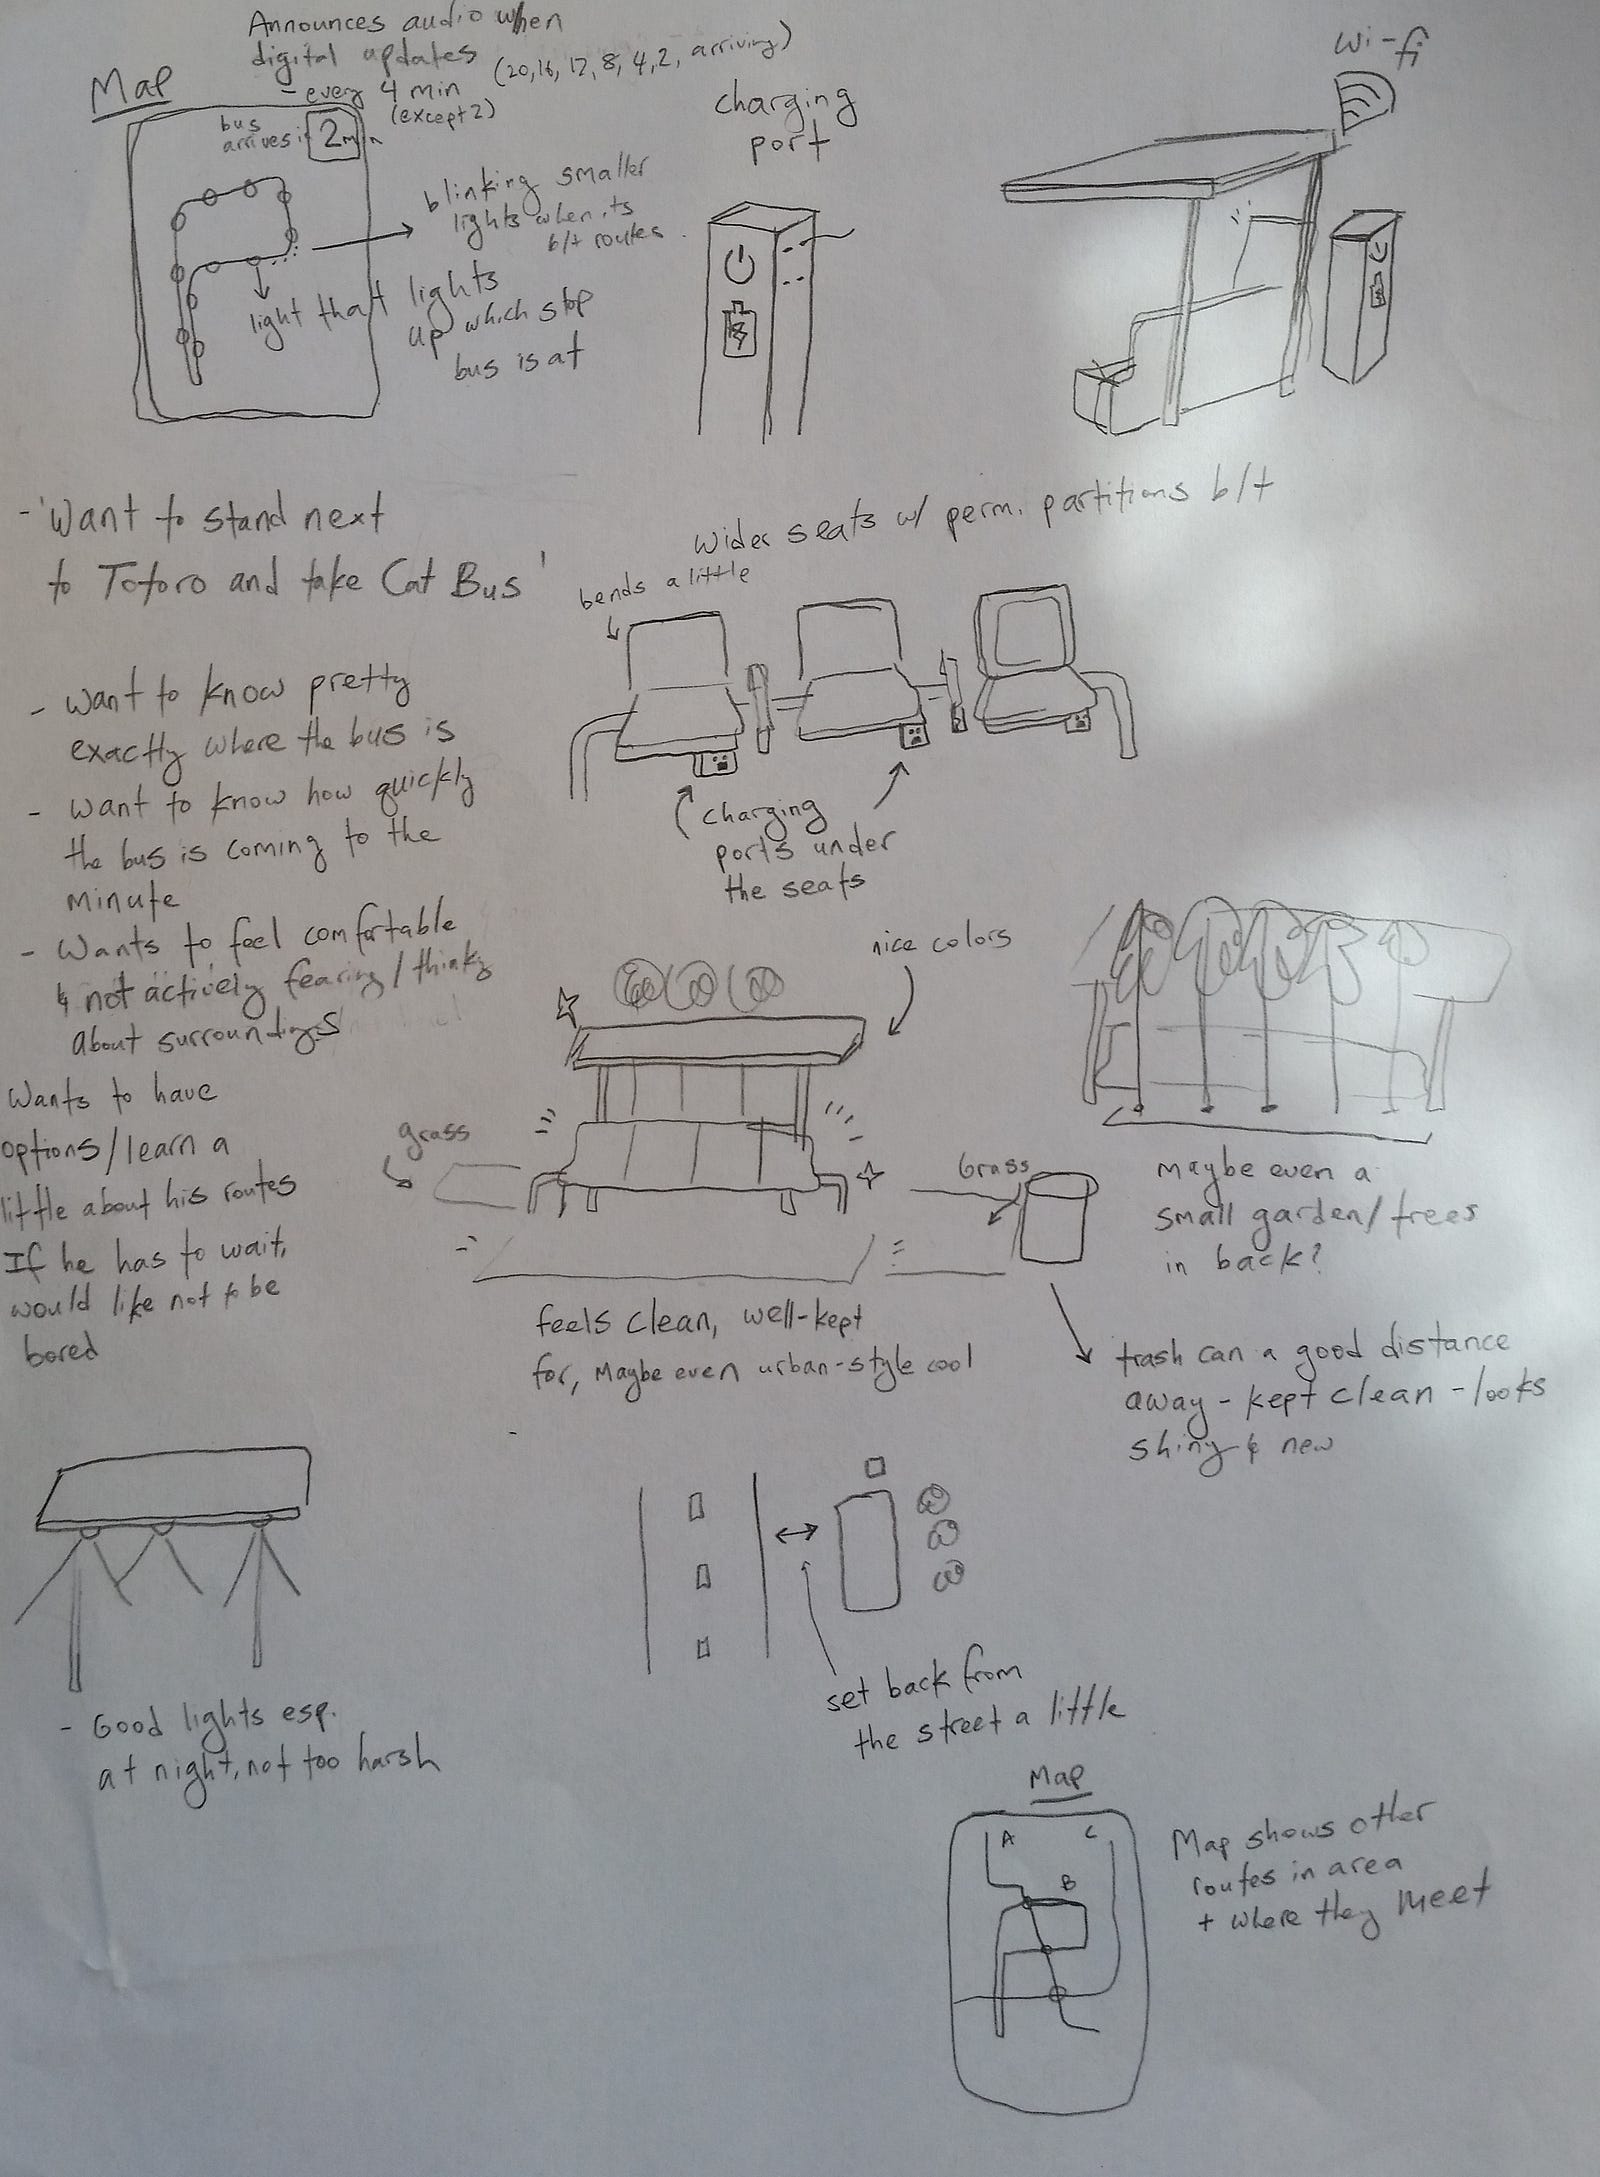 Announces audio when
digital updates
- every 4 min
(except 2)
(20, 16, 12, 8, 4, 2, arriving)
Map
bus
arrives in
2 min
blinking smaller
lights when its
b/t routes.
light that lights
up which stop
bus is at
charging
port
Wi-fi
- 'Want to stand next
to Totoro and take Cat Bus'
- Want to know pretty
exactly where the bus is
- Want to know how quickly
the bus is coming to the
minute
- Wants to feel comfortable
& not actively fearing/thinking
About surroundings
Wants to have
options/learn a
little about his routes
If he has to wait,
would like not to be
bored
Wider seats w/ perm. partitions b/t
bends a little
Charging
ports under
the seats
nice colors
grass
Grass
feels clean, well-kept
for, Maybe even urban-style cool
Maybe even a
small garden/trees
in back?
trash can a good distance
away - kept clean - looks
shiny & new
- Good lights esp.
at night, not too harsh
set back from
the street a little
Map
A
C
B
Map shows other
routes in area
+ where they meet